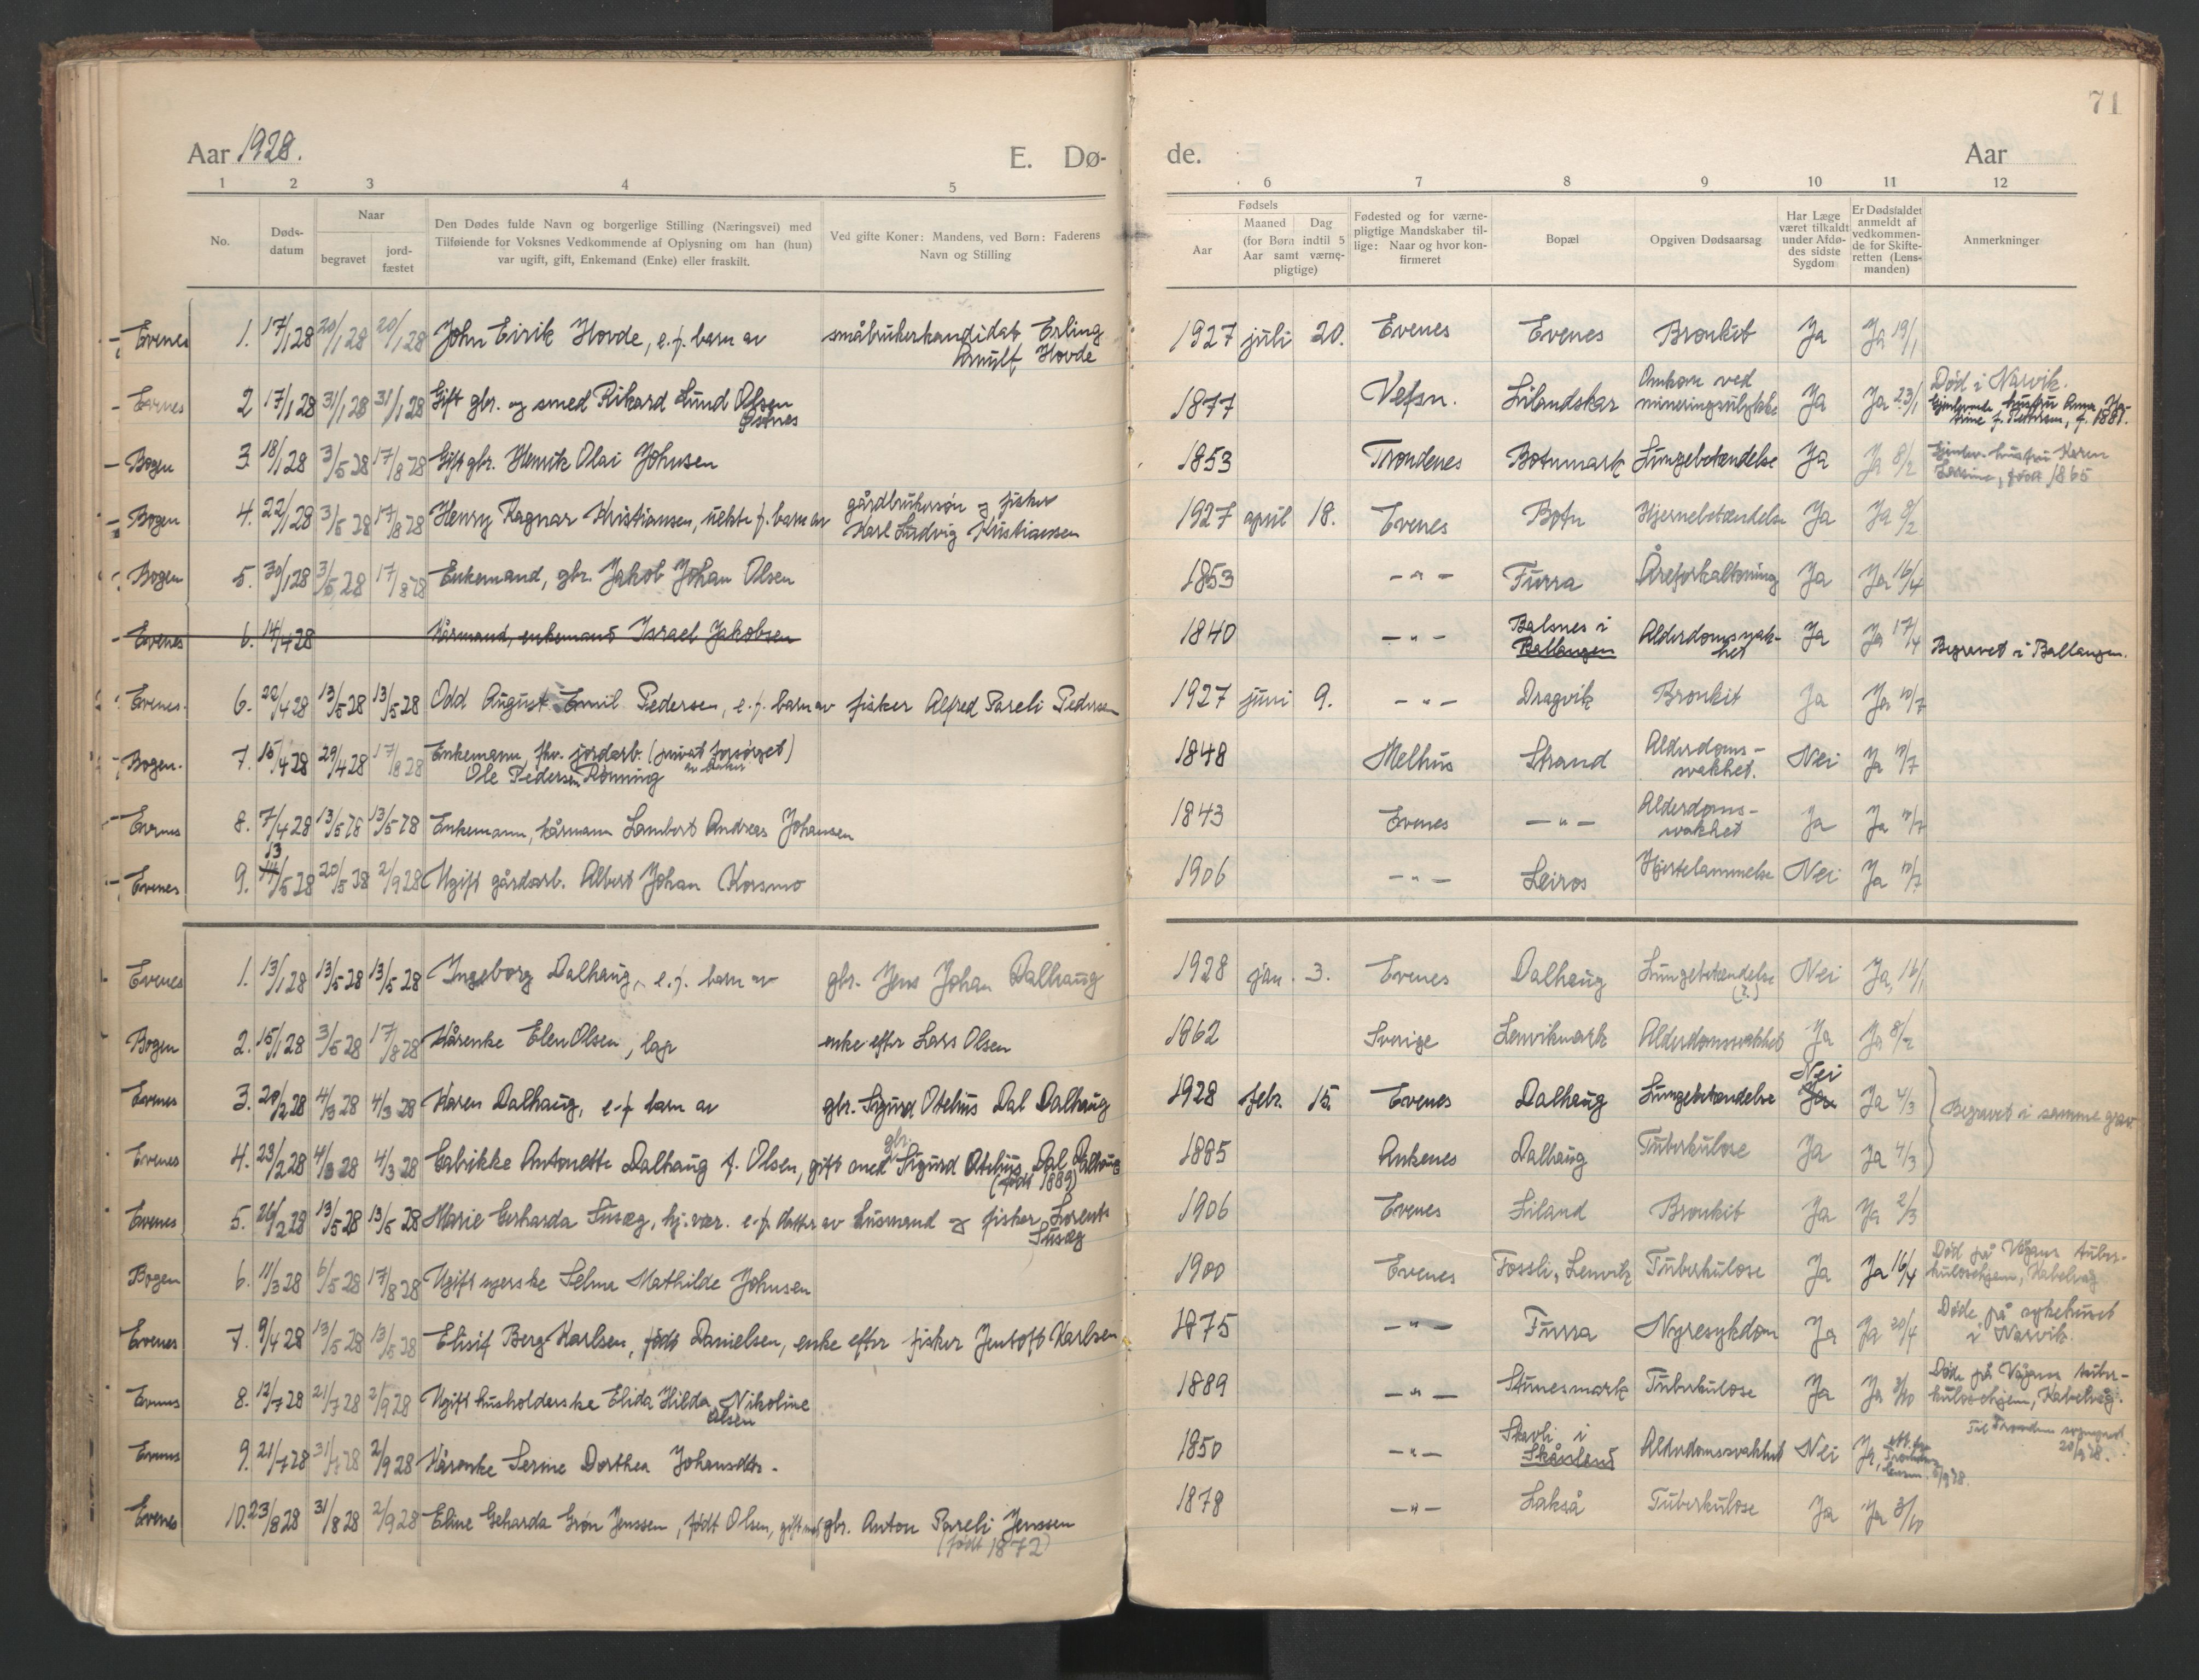 71
Aar 1928. E. Dø- de. Aar
1 2 3 4 5 6 7 8 9 10 11 12
No. Døds-datum Naar begravet jord-fæstet Den Dødes fulde Navn og borgerlige Stilling (Næringsvei) med Tilføiende for Voksnes Vedkommende af Oplysning om han (hun) var ugift, gift, Enkemand (Enke) eller fraskilt. Ved gifte Koner: Mandens, ved Børn: Faderens Navn og Stilling Fødsels Aar Maaned Dag (for Børn indtil 5 Aar samt værne-pligtige) Fødested og for værne-pligtige Mandskaber til-lige: Naar og hvor kon-firmeret Bopæl Opgiven Dødsaarsag Har Læge været tilkaldt under Afdø-des sidste Sygdom Er Dødsfaldet anmeldt af vedkommen-de for Skifte-retten (Lens-manden) Anmerkninger
Evenes 1. 17/1 28 20/1 28 20/1 28 John Eirik Hovde, e.f. barn av småbrukerkandidat Erling Arnulf Hovde 1927 juli 20. Evenes Evenes Bronkit Ja Ja 19/1
Evenes 2 17/1 28 31/1 28 31/1 28 Gift gbr. og smed Rikard Lund Olsen Østnes 1877 Vefsn. Lilandskar Omkom ved mineringsulykke Ja Ja 23/1 Død i Narvik. Gjenlevende hustru Anna f. 1881.
Bogen 3. 18/1 28 3/5 28 17/8 28 Gift gbr. Henrik Olai Johnsen 1853 Trondenes Botnmark Lungebetændelse Ja Ja 8/2 hustru Karen født 1865
Bogen 4. 22/1 28 3/5 28 17/8 28 Henry Ragnar Kristiansen, uekte f. barn av gårdbrukersøn og fisker Karl Ludvig Kristiansen 1927 april 18. Evenes Botn Hjernebetændelse Ja Ja 8/2
Bogen 5. 30/1 28 3/5 28 17/8 28 Enkemand, gbr. Jakob Johan Olsen 1853 -"- Furra Åreforkalkning Ja Ja 16/4
Evenes 6. 14/4 28 Kårmand, enkemand Israel Jakobsen 1840 -"- Balsnes i Ballangen Alderdomssvak-het Ja Ja 17/4 Begravet i Ballangen.
Evenes. 6. 22/4 28 13/5 28 13/5 28 Odd August Emil Pedersen, e.f. barn av fisker Alfred Pareli Pedersen 1927 juni 9. -"- Dragvik Bronkit Ja Ja 10/7
Bogen. 7. 15/4 28 29/4 28 17/8 28 Enkemann, fhv. jordarb. (privat forsørget) Ole Pedersen Rønning 1848 Melhus Strand Alderdoms-svakhet. Nei Ja 10/7
Evenes 8. 7/4 28 13/5 28 13/5 28 Enkemann, kårmann Lambert Andreas Johansen 1843 Evenes -"- Alderdoms-svakhet Ja Ja 10/7
Evenes 9. 13/5 28 20/5 28 2/9 28 Ugift gårdsarb. Albert Johan Korsmo 1906 -"- Leiros Hjertelammelse Nei Ja 10/7
Evenes 1. 13/1 28 13/5 28 13/5 28 Ingeborg Dalhaug, e.f. barn av gbr. Jens Johan Dalhaug 1928 jan. 3. Evenes Dalhaug Lungebetændelse (?) Nei Ja, 16/1
Bogen 2. 15/1 28 3/5 28 17/8 28 Kårenke Elen Olsen, lap enke efter Lars Olsen 1862 Sverige Lenvikmark Alderdomssvakhet Ja Ja 8/2
Evenes 3. 20/2 28 4/3 28 4/3 28 Karen Dalhaug, e.f. barn av gbr. Sigurd Otelius Dal Dalhaug 1928 febr. 15. Evenes Dalhaug Lungebetændelse Nei Ja 4/3 Begravet i samme grav
Evenes 4. 23/2 28 4/3 28 4/3 28 Gabrikke Antonette Dalhaug f. Olsen, gift med gbr. Sigurd Otelius Dal Dalhaug (født 1889) 1885 Ankenes Dalhaug Tuberkulose Ja Ja 4/3
Evenes 5. 26/2 28 13/5 28 13/5 28 Marie Gerharda Susæg, hj.vær. e.f. datter av husmand og fisker Lorents Susæg 1906 Evenes Liland Bronkit Ja Ja 2/3
Bogen 6. 11/3 28 6/5 28 17/8 28 Ugift syerske Selma Mathilde Johnsen 1900 Evenes Fossli, Lenvik Tuberkulose Ja Ja 16/4 Død på Vågans tuber-kulosehjem, Kabelvåg
Evenes 7. 9/4 28 13/5 28 13/5 28 Elisif Berg Karlsen, født Danielsen, enke efter fisker Jentoft Karlsen 1875 -"- Furra Nyresykdom Ja Ja 20/4 Døde på sykehuset i Narvik.
Evenes 8. 12/7 28 21/7 28 2/9 28 Ugift husholderske Elida Hilda Nikoline Olsen 1889 -"- Stunesmark Tuberkulose Ja Ja 3/10 Døde på Vågans tuber-kulosehjem, Kabelvåg.
Evenes 9. 21/7 28 31/7 28 2/9 28 Kårenke Serine Dorthea Johansdtr. 1850 -"- Skavli i Skånland Alderdomssvakhet Nei Ja, 5/9 28. Til Trondenes sogneprest 20/9 28.
Evenes 10. 23/8 28 31/8 28 2/9 28 Eline Geharda Grøn Jenssen, født Olsen, gift med gbr. Anton Pareli Jenssen (født 1872) 1878 -"- Lakså Tuberkulose Ja Ja 3/10